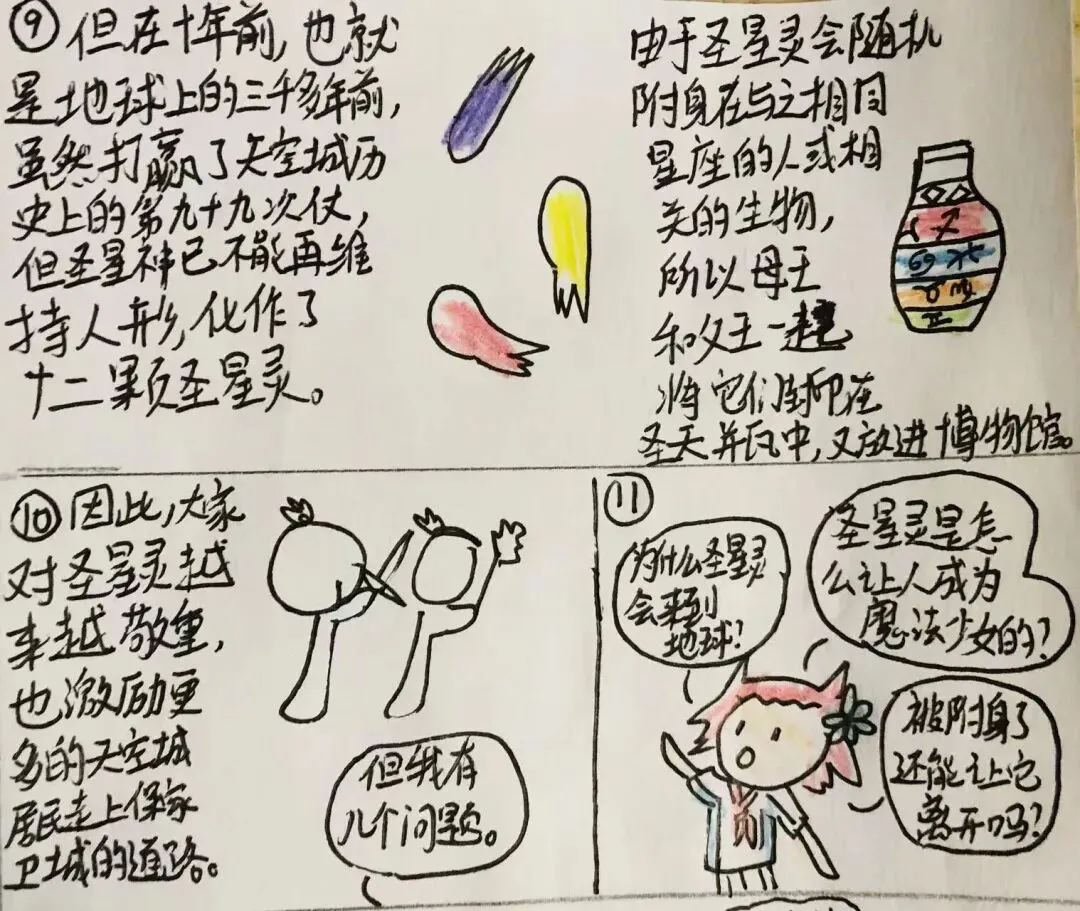 ⑨但在十年前,也就
是地球上的三千多年前,
虽然打赢了天空城历
史上的第九十九次仗,
但圣星神已不能再维
持人形,化作了
十二颗圣星灵。
由于圣星灵会随机
附身在与之相同
星座的人或相
关的生物,
所以母王
和父王一起
将它们封印在
圣天井瓦中,又放进博物馆。
♐
♋♓
♉♍
♊
⑩因此,大家
对圣星灵越
来越敬重,
也激励更
多的天空城
居民走上保家
卫城的道路。
但我有
几个问题。
⑪
为什么圣星灵
会来到
地球?
圣星灵是怎
么让人成为
魔法少女的?
被附身了
还能让它
离开吗?